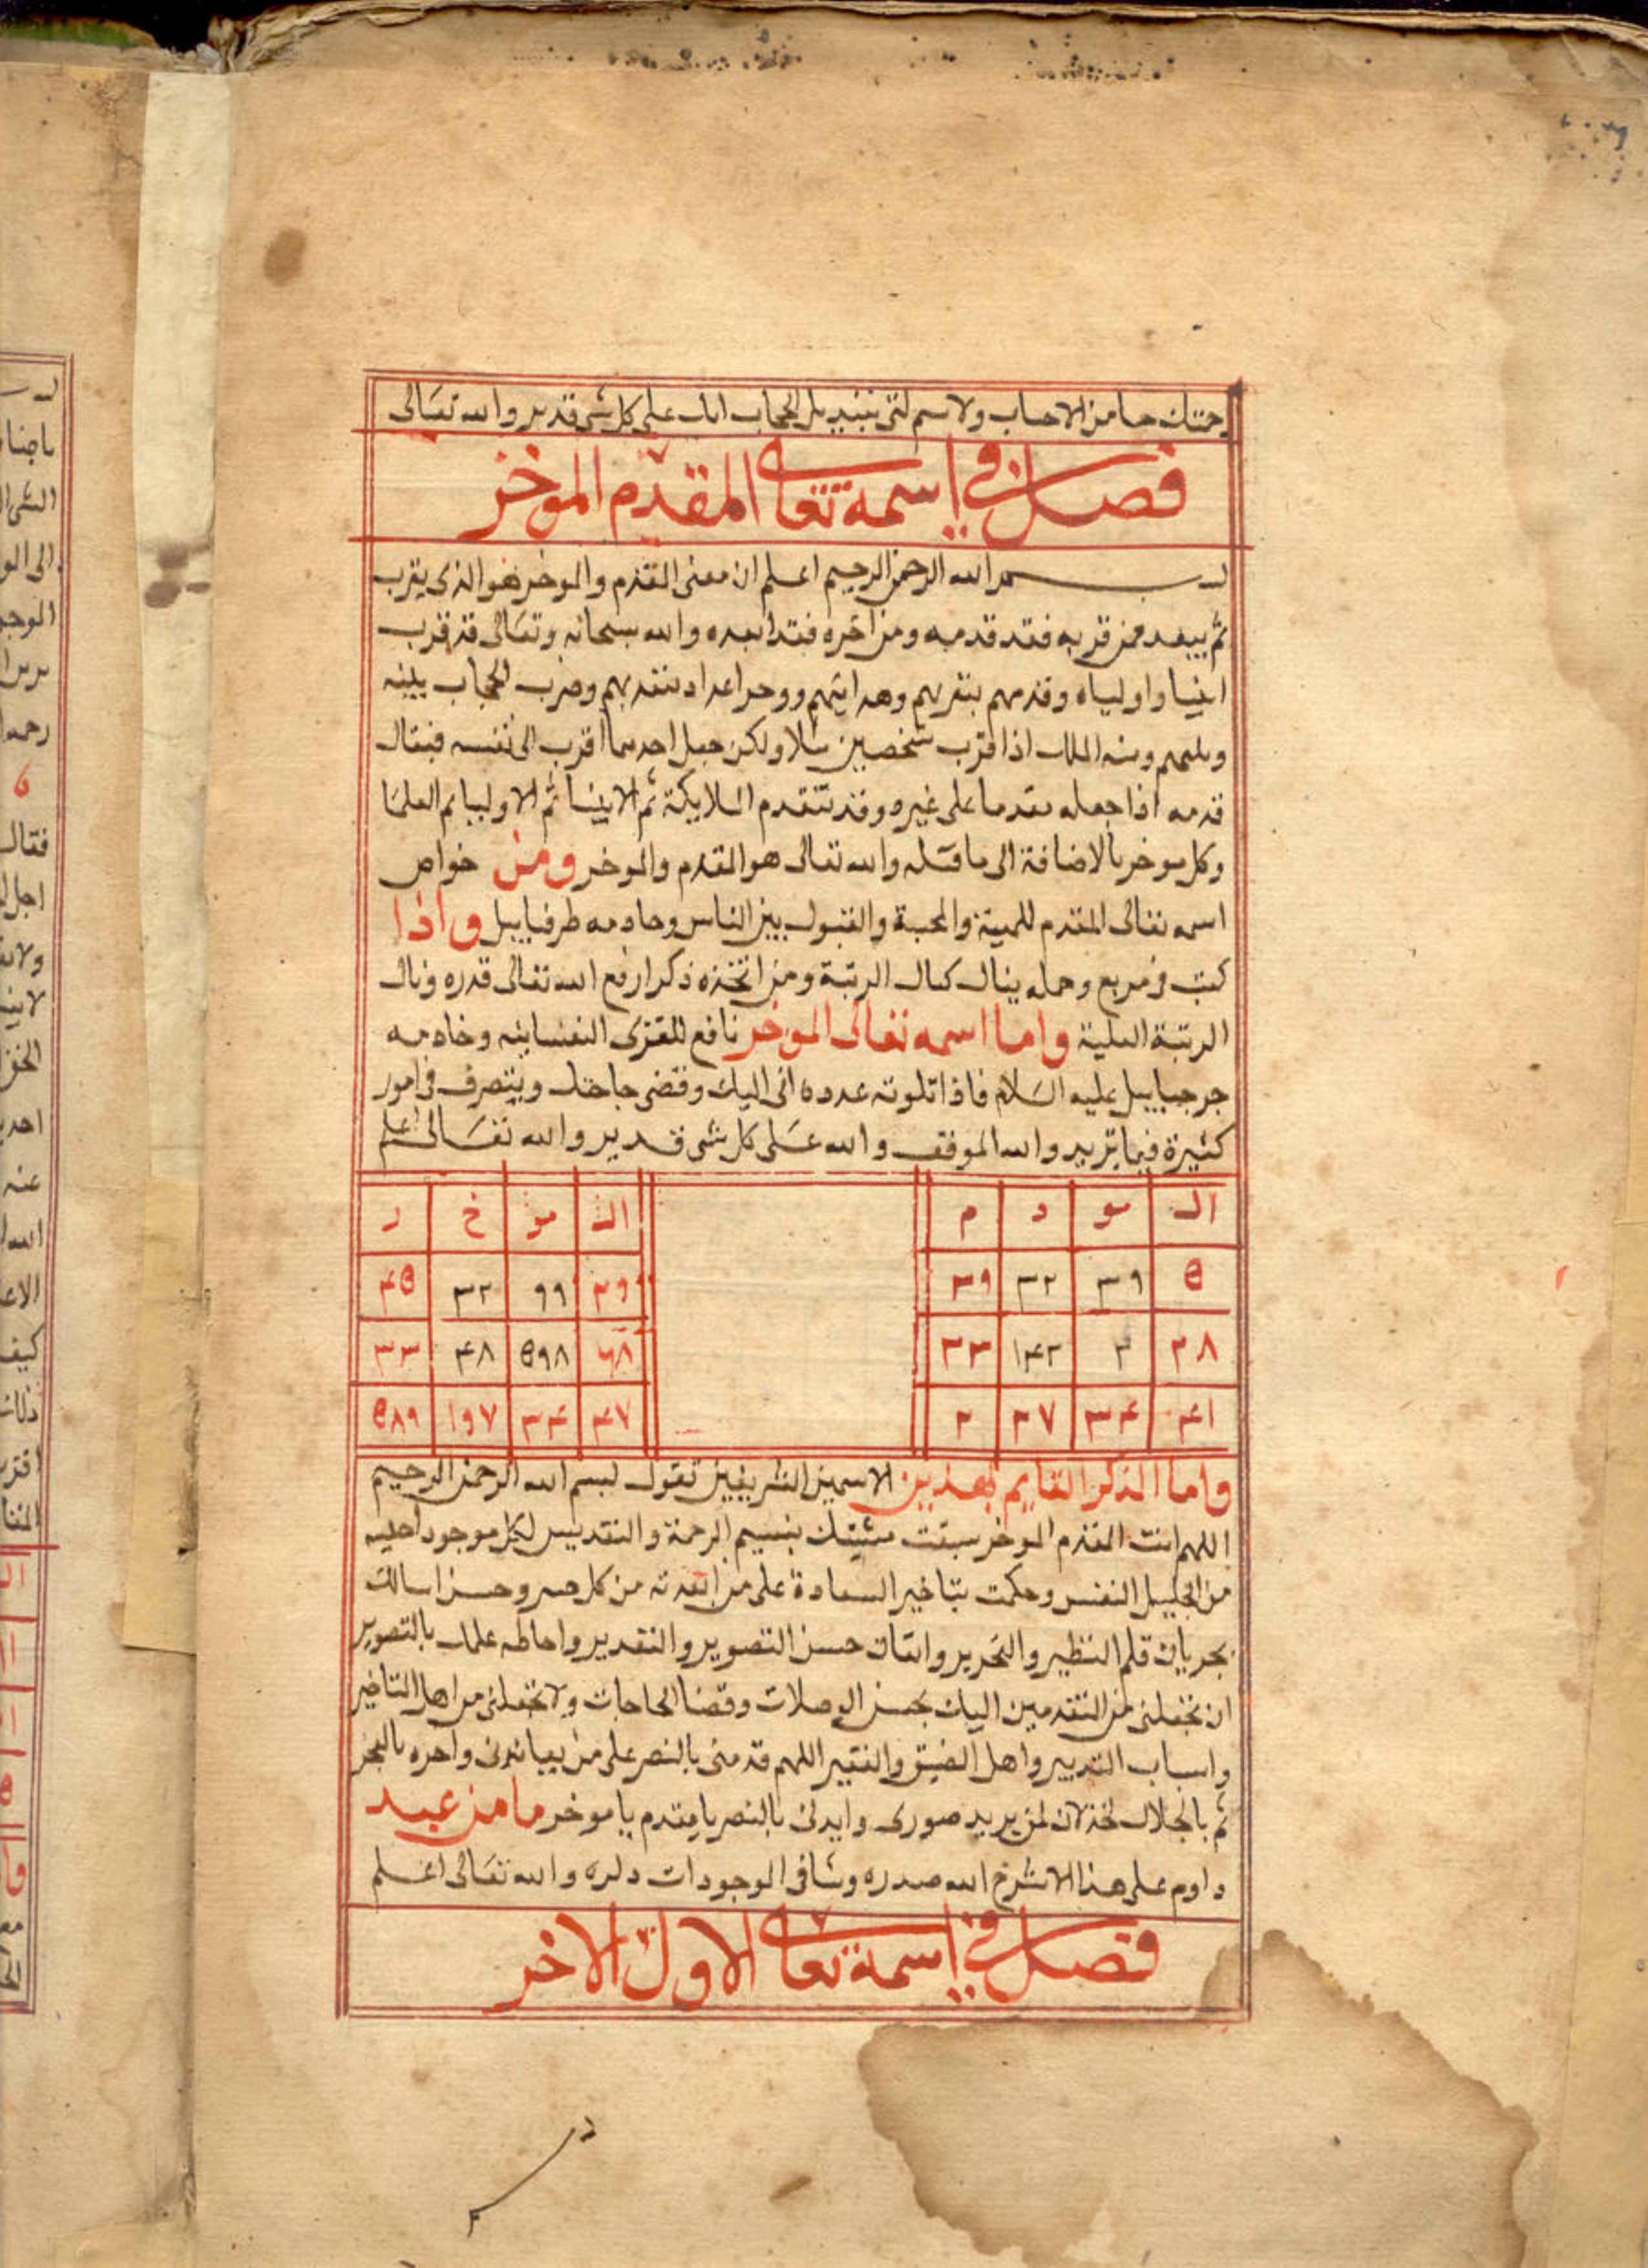 رحمتك من الاحباب ولا سم بل الحجاب انك على كل شى قدير والله تعالى
فصل فى اسمه تعالى المقدم الموخر
بسم الله الرحمن الرحيم اعلم ان معنى المقدم والموخر هو الذى يقرب
ثم يبعد فمن قربه فقد قدمه ومن اخره فقد ابعده والله سبحانه وتعالى قد قرب
انبيا واولياه وقدمهم بتقربهم وهدايتهم وضرب الحجاب بينه
وبينهم الملك اذا قرب شخصين مثلا ولكن جعل احدهما اقرب الى نفسه فيقال
قدمه اذا جعله مقدما على غيره وقد تتقدم الملايكة ثم الانبيا ثم الاوليا ثم العلما
وكل موخر بالاضافة الى ما قبله والله تعالى هو المقدم والموخر ومن خواص
اسمه تعالى المقدم والمحبة والقبول بين الناس وخادمه طرفياييل واذا
كتب فى مربع وحمله ينال كمال الرتبة ومن اتخذه ذكرا رفع الله تعالى قدره ونال
الرتبة العلية واما اسمه تعالى الموخر نافع للقوى النفسانيه وخادمه
جرجياييل عليه السلام فاذا تلوته عدده اتى اليك وقضى حاجتك ويتصرف فى امور
كثيرة فيما تريد والله الموفق والله على كل شى قدير والله تعالى اعلم
ال مو د م
ال مو خ ر
۵ ۳۹ ۳۲ ۳۹
۲۹ ۹۹ ۳۲ ۴۵
۳۸ ۳ ۱۴۲ ۳۳
۶۸ ۵۹۸ ۴۸ ۳۳
۴۱ ۳۴ ۳۷ ۲
۴۷ ۳۴ ۱۹۷ ۵۸۹
واما الذكر القايم بهذين الاسمين الشريفين تقول بسم الله الرحمن الرحيم
اللهم انت المقدم الموخر سبقت مشيتك الرحمة والتقديس لكل موجود
من النفس وحكمت بتاخير السعادة على من ابعدته من كل وحسن اسالك
بجريان قلم والتحرير واتقان حسن التصوير والتقدير واحاطه علمك بالتصوير
ان تجعلنى من المتقدمين اليك بحسن الوصلات وقضا الحاجات ولا تجعلنى من اهل التاخير
واسباب التدبير واهل الضيق اللهم قدمنى بالنصر على من يعاندنى واخره بالعجز
ثم لمن يريد وايدنى بالنصر يا مقدم يا موخر ما من عبد
داوم على هذا الا شرح الله صدره الوجودات والله تعالى اعلم
فصل فى اسمه تعالى الاول الاخر